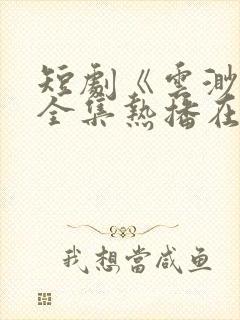 短劇《雲渺
全集熱播在
我想當咸鱼